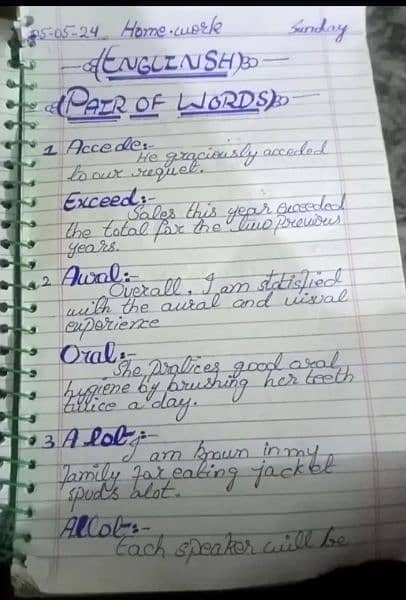 05-05-24 Home.work Sunday
ENGLINSH
PAIR OF WORDS
1 Accede:-
He graciously acceded
to our requet.
Exceed:-
Sales this year exceeded
the total for the two previous
years.
2 Aural:-
Overall, I am statisfied
with the aural and visual
experience
Oral:-
She pratices good oral
hygiene by brushing her teeth
twice a day.
3 A lot:-
I am known in my
family for eating jacket
spuds alot.
Allot:-
Each speaker will be